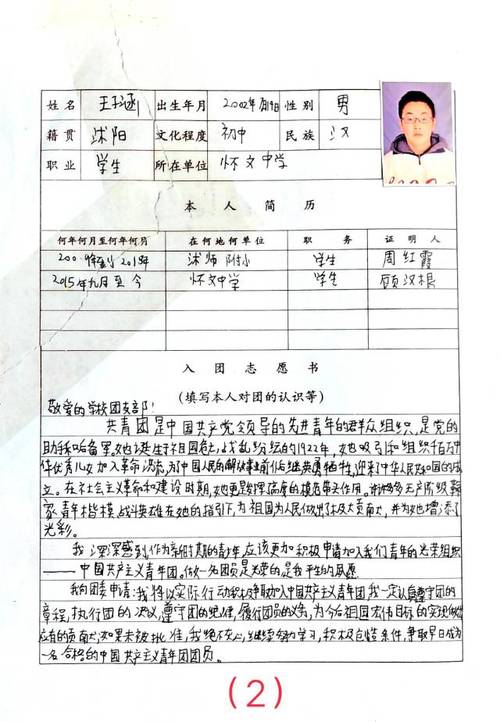 姓名 王子涵 出生年月 2002年 性别 男
籍贯 沭阳 文化程度 初中 民族 汉
职业 学生 所在单位 怀文中学
本人简历
何年何月至何年何月 在何地何单位 职务 证明人
沭师附小 学生 周红霞
2015年九月至今 怀文中学 学生 顾汉根
入团志愿书
(填写本人对团的认识等)
敬爱的学校团支部:
共青团是中国共产党领导的先进青年的群众组织,是党的
助手和后备军,她诞生于祖国危亡,战乱纷纭的1922年,她吸引和组织千百万中
华优秀儿女加入革命洪流,为中国人民的解放事业前仆后继英勇牺牲,迎来中华人民共和国的成
立。在社会主义革命和建设时期,她更是发挥
青年楷模 战斗英雄在她的指引下,为祖国为人民做出了极大贡献,并为她增添了
光彩。
我深深感到作为新时期的青少年应该更加积极申请加入我们青年的光荣组织
——中国共产主义青年团。做一名团员是光荣的是我平生的夙愿
我向团委申请:我将以实际行动积极争取加入中国共产主义青年团我一定认真遵守团的
章程,执行团的决议,遵守团的纪律,履行团员的义务,为今后祖国宏伟目标的实现做出
应有的贡献,如果未被批准,我绝不灰心,继续努力学习,积极创造条件,争取早日成为
一名合格的中国共产主义青年团团员。
(2)